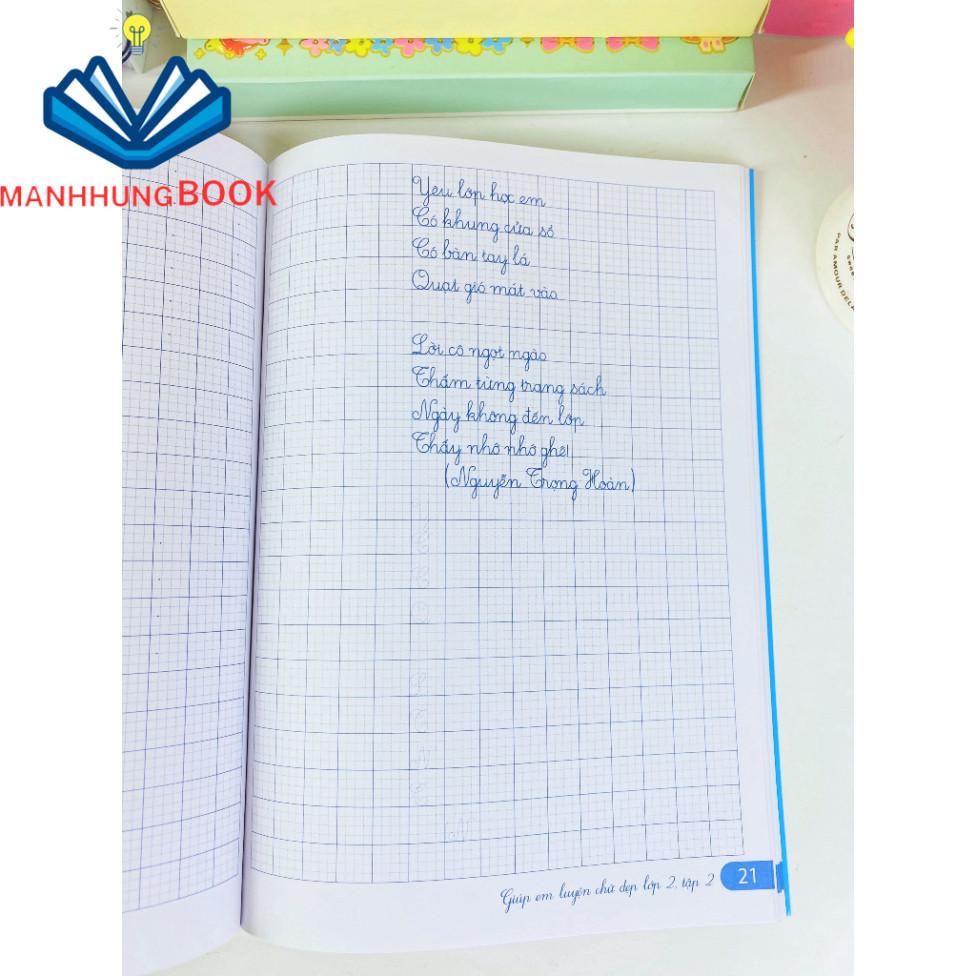 MANHHUNGBOOK
Yêu lớp học em
Có khung cửa sổ
Có bàn tay lá
Quạt gió mát vào
Lời cô ngọt ngào
Thấm từng trang sách
Ngày không đến lớp
Thấy nhớ nhớ ghê!
(Nguyễn Trọng Hoàn)
Giúp em luyện chữ đẹp lớp 2, tập 2
21
PAR AMOUR